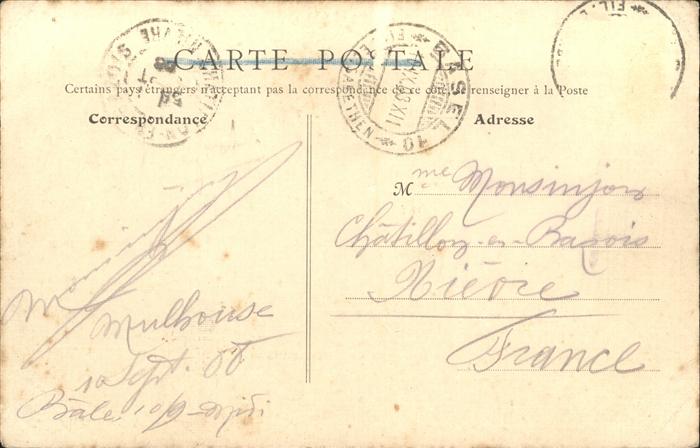 CARTE POSTALE
Certains pays étrangers n'acceptant pas la correspondance de ce côté, se renseigner à la Poste
Correspondance
Adresse
BASEL
01
Mme Monsinjon
Châtillon-en-Bazois
Nièvre
France
Mulhouse
10 Sept. 08
Bâle 10/9